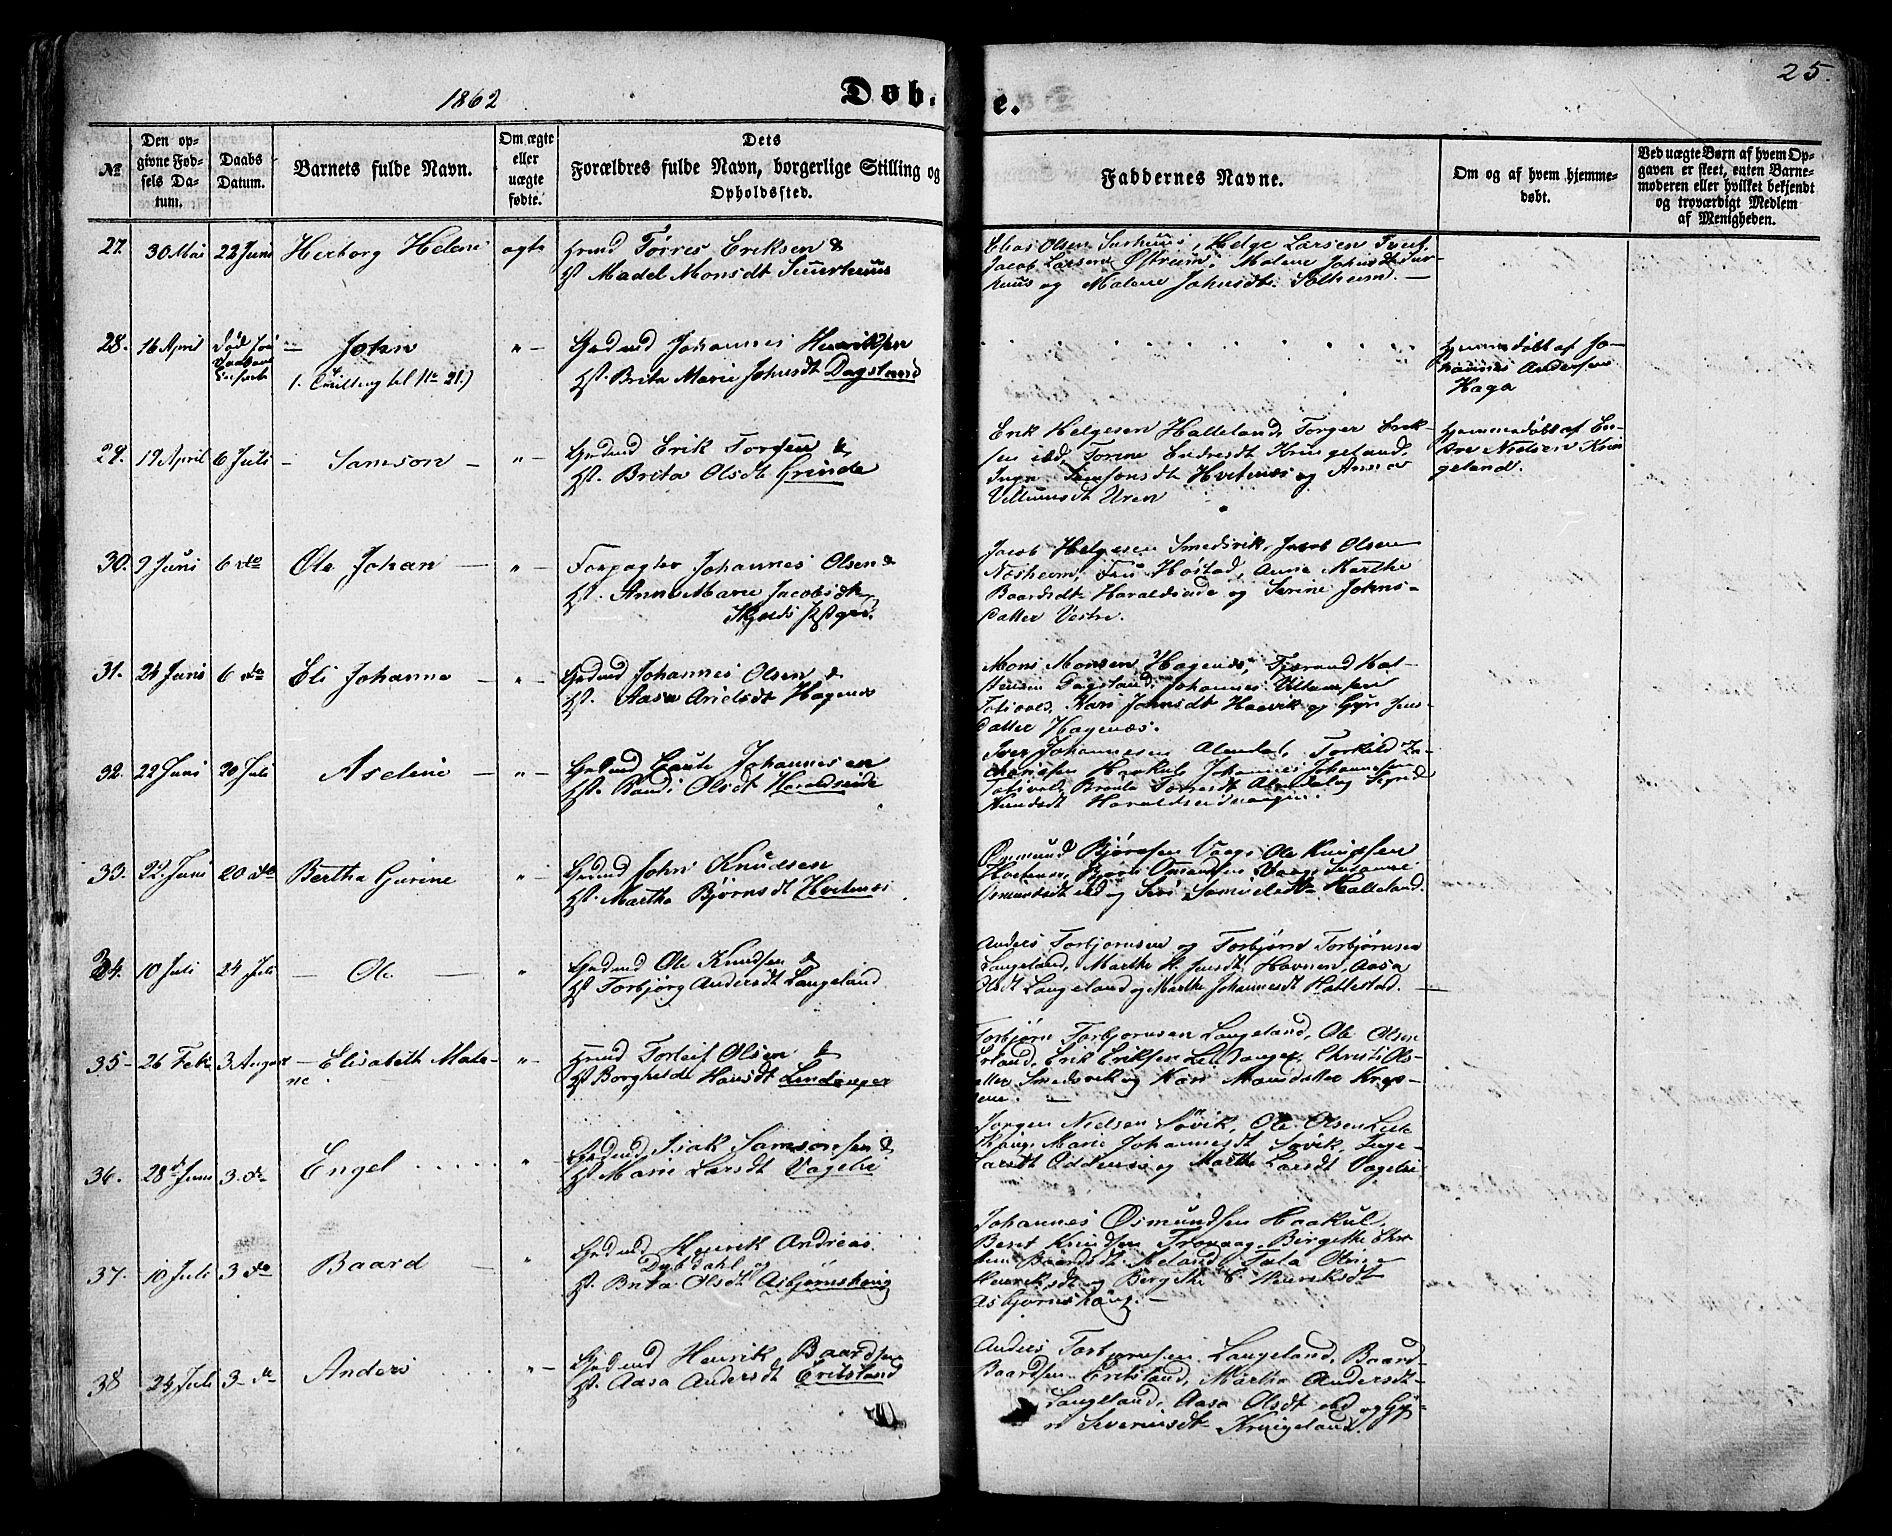 25.
1862
Døb. e.
№
Den op-
givne Fød-
sels Da-
tum.
Daabs
Datum.
Barnets fulde Navn.
Om ægte
eller
uægte
fødte.
Dets
Forældres fulde Navn, borgerlige Stilling og
Opholdssted.
Faddernes Navne.
Om og af hvem hjemme-
døbt.
Ved uægte Børn af hvem Op-
gaven er skeet, enten Barne-
moderen eller hvilket bekjendt
og troværdigt Medlem
af Menigheden.
27. 30 Mai 22 Juni Herborg Helene ægte
Hmd Tørres Eriksen &
H. Madel Monsdt
Elias Olsen Helge Larsen
Jacob Larsen Østreim, Malene Johnsdt
og Malene Johnsdt Solheim.
28. 16 April død John
(. Tvilling til No 21.)
Gmd Johannes Henriksen
H. Brita Marie Johnsdt Dagsland
Hjemmedøbt af Jo-
hannes Andersen
Haga
29. 19 April 6 Juli Samson
Gmd Erik &
H. Brita Olsdt Grinde
Erik Helgesen Halleland, Torger Erik-
sen ibd, Torine Endresdt Kringeland,
Hvitenæs og Anna
Villumsdt Uren
Hjemmedøbt af En-
dre Nielsen Krin-
geland.
30. 9 Juni 6 do Ole Johan
Forpagter Johannes Olsen &
H. Anne Marie Jacobsdt
Jacob Helgesen Smedsvik, Jacob Olsen
Nesheim, Fru Høstad, Anne Marthe
Baardsdt Haraldseide og Serine Johns-
datter Vestre.
31. 24 Juni 6 do Eli Johanne
Gmd Johannes Olsen &
H. Aasa Arielsdt Hagenæs
Mons Monsen Hagenæs,
Dagsland, Johannes Villumsen
Kari Johnsdt og Guri Jens-
datter Hagenæs.
32. 22 Juni 20 Juli Aselene
Gmd Gaute Johannesen
H. Randi Olsdt Haraldseide
Iver Johannesen Alendal, Torkild Za-
chariasen Johannes Johannesen
Alendal og Sigrid
33. 22 Juni 20 do Bertha Gurine
Gmd John Knudsen
H. Martha Bjørnsdt Hvitenæs
Osmund Bjørnsen Vaage Ole Knudsen
Hvitenæs, Bjørn Osmundsen Vaage Susanne
Osmundsdt ibd og Siri Samuelsdt Halleland.
34. 10 Juli 24 Juli Ole
Gmd Ole Knudsen &
H Torbjørg Andersdt Langeland
Anders Torbjørnsen og Torbjørn Torbjørnsen
Langeland, Marthe H. Jensdt Havnen, Aasa
Olsdt Langeland og Marthe Johannesdt Hallestad.
35 26 Feb. 3 August Elisabeth Male-
ne
Hmd Torleif Olsen &
H Borghilde Hansdt Lindanger
Torbjørn Torbjørnsen Langeland, Ole Olsen
Erland, Erik Eriksen Lindanger, Christi Ols-
datter Smedsvik og Kari Monsdatter
36. 28 Juni 3. do Engel
Gmd Isak Samsonsen &
H. Marie Larsdt Vagelie
Jørgen Nielsen Søvik, Ole Olsen
Marie Johannesdt Søvik, Inge-
Larsdt og Martha Larsdt Vagelie
37. 10 Juli 3 do Baard
Gmd Henrik Andreas
Dybdahl og
H. Brita Olsdt Asbjørnshoug
Johannes Osmundsen Haakul,
Knudsen Trovaag, Birgethe
Baardsdt
Henriksdt og Bergethe C. Henriksdt
Asbjørnshoug.
38 24 Juli 3 do Anders
Gmd Henrik Baardsen
H. Aasa Andersdt Eribsland
Anders Torbjørnsen Langeland, Baard
Baardsen Eribsland, Martha Andersdt
Langeland, Aasa Olsdt ibd og
Severinsdt Kringeland.